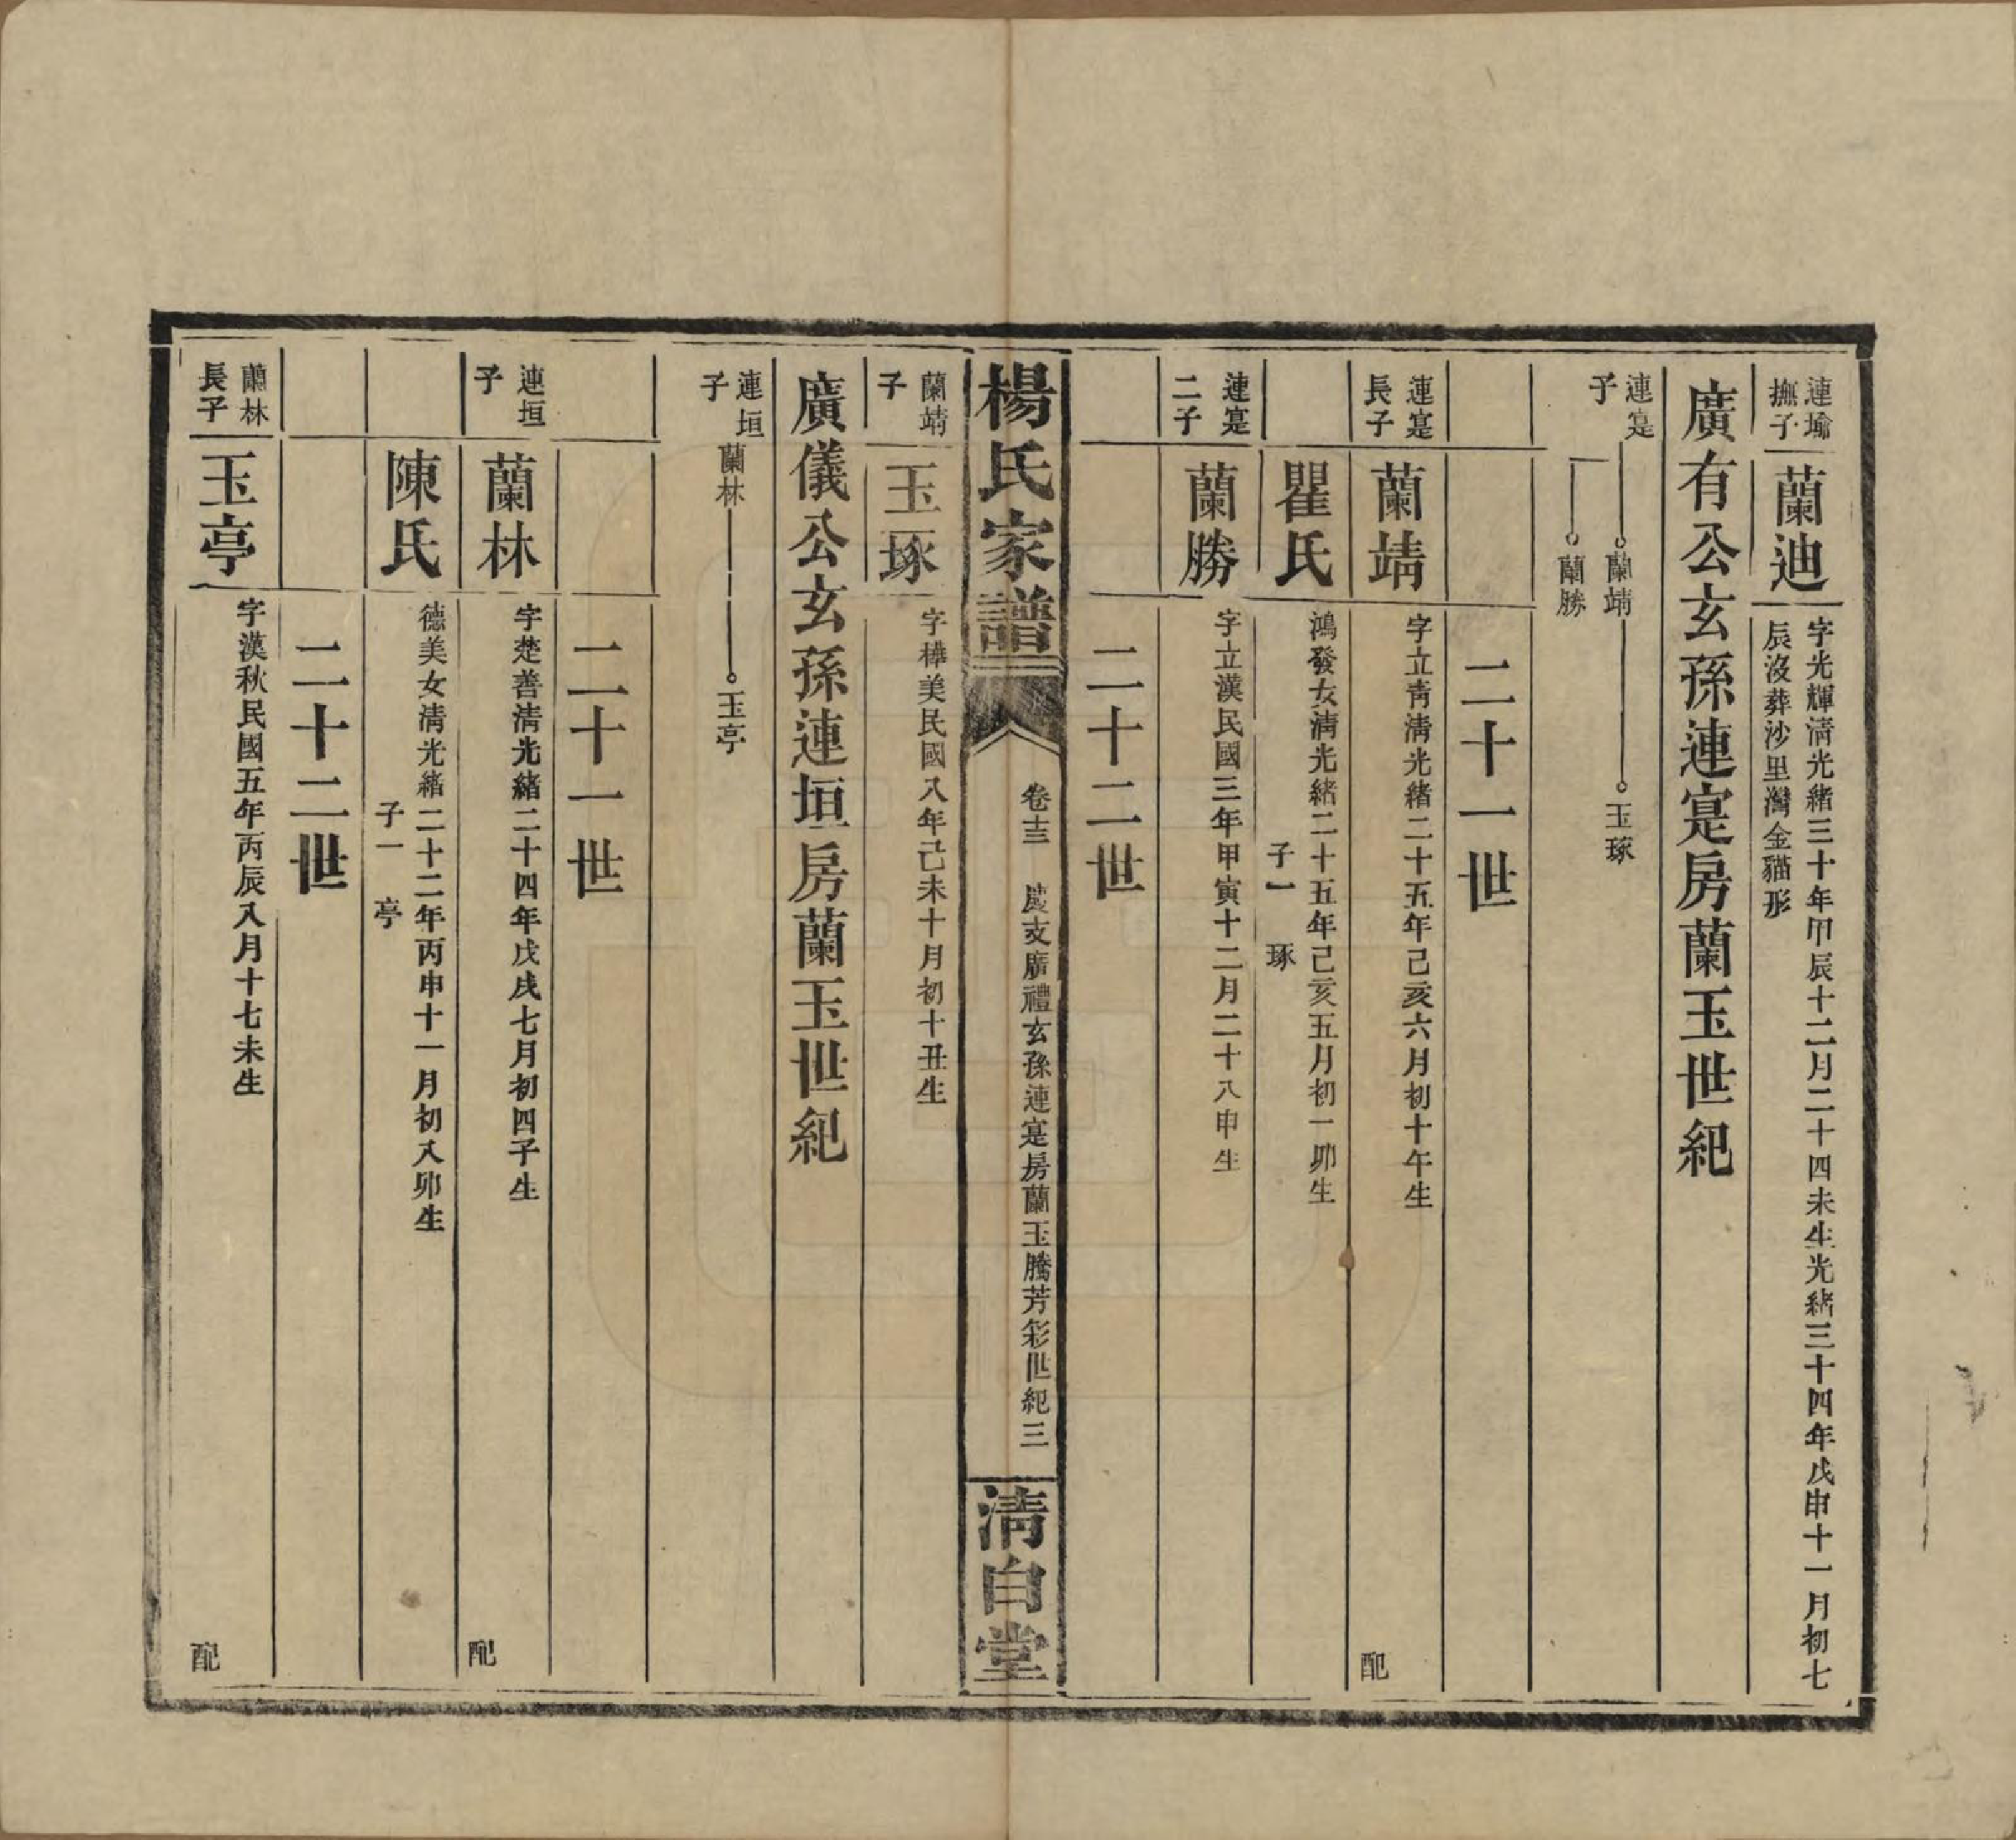 連瑜
撫子
蘭迪
字光輝清光緒三十年甲辰十二月二十四未生光緒三十四年戊申十一月初七
辰沒葬沙里灣金貓形
廣有公玄孫連寔房蘭玉世紀
連寔
子
蘭靖
玉琢
蘭勝
二十一世
連寔
長子
蘭靖
字立靑清光緒二十五年己亥六月初十午生
配
瞿氏
鴻發女清光緒二十五年己亥五月初一卯生
子一 琢
連寔
二子
蘭勝
字立漢民國三年甲寅十二月二十八申生
二十二世
楊氏家譜
卷十三 慶支廣禮玄孫連寔房蘭玉騰芳彩世紀 三
清白堂
蘭靖
子
玉琢
字樺美民國八年己未十月初十丑生
廣儀公玄孫連垣房蘭玉世紀
連垣
子
蘭林
玉亭
二十一世
連垣
子
蘭林
字楚善清光緒二十四年戊戌七月初四子生
配
陳氏
德美女清光緒二十二年丙申十一月初八卯生
子一 亭
二十二世
蘭林
長子
玉亭
字漢秋民國五年丙辰八月十七未生
配